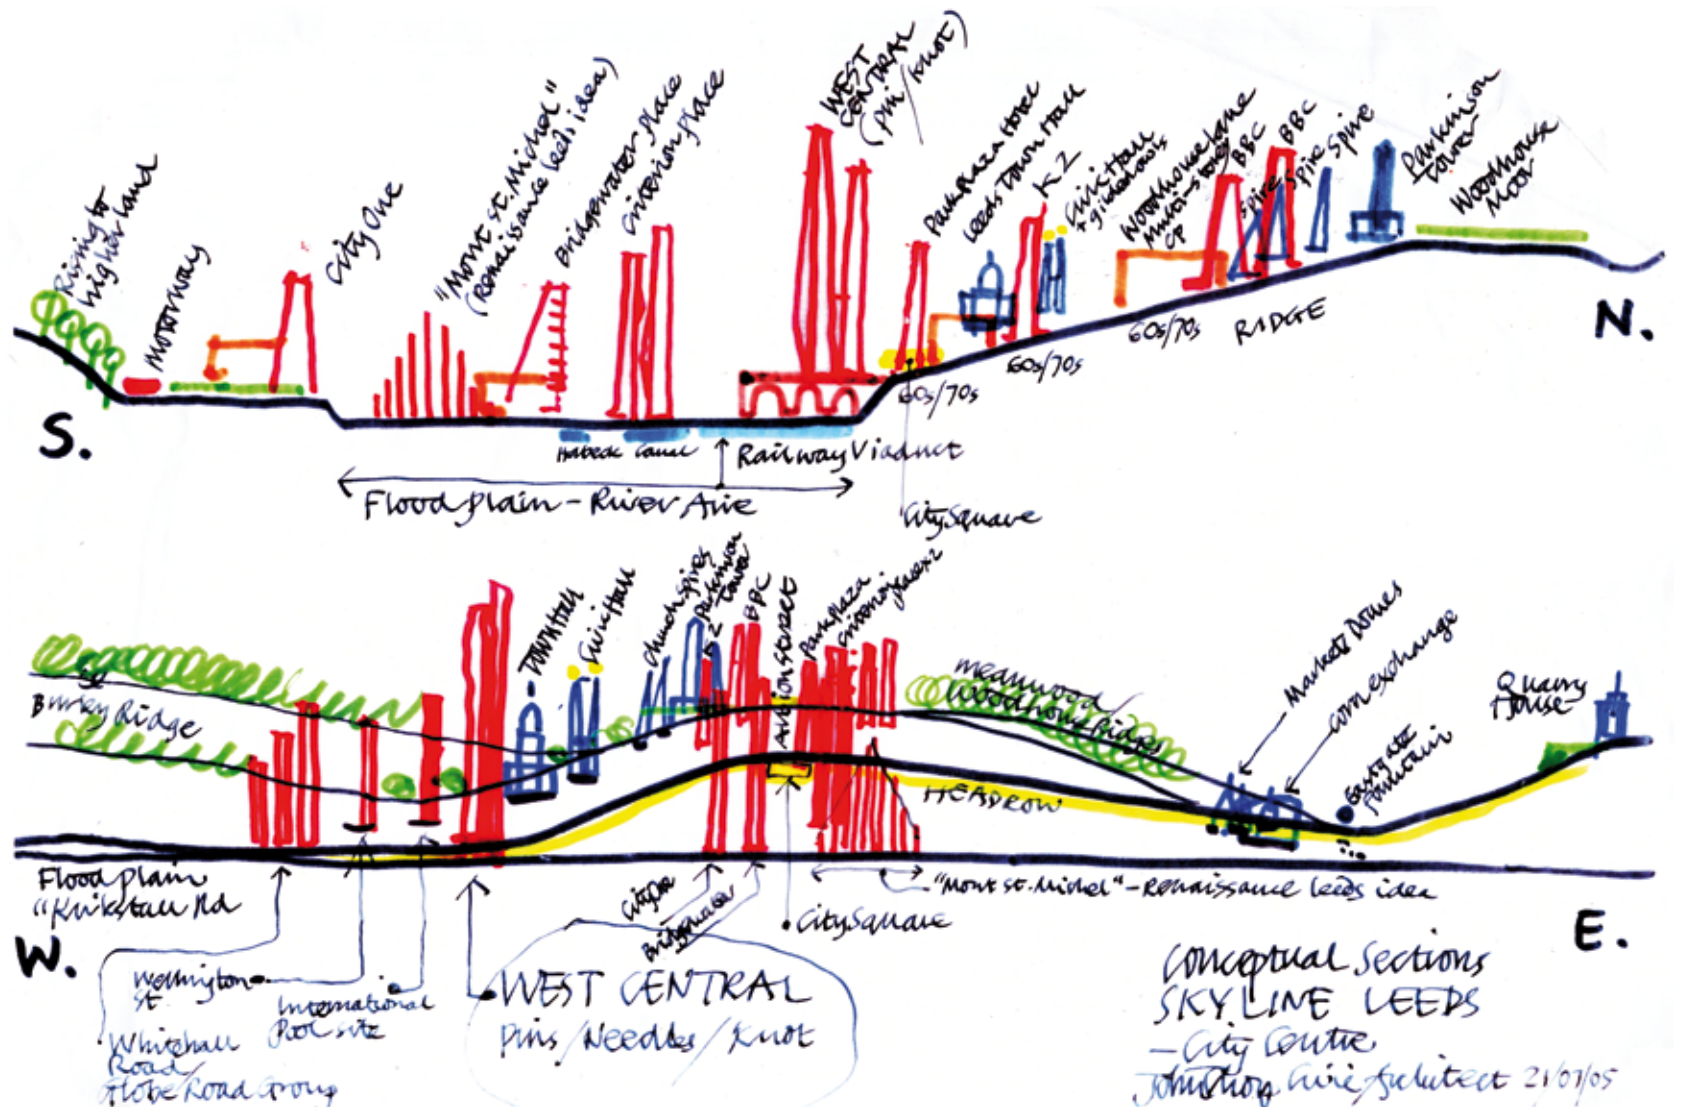 Rising to
higher land
Motorway
City One
"Mont st. Michel"
(Renaissance leeds idea)
Bridgewater place
Criterion place
WEST
CENTRAL
(pin/knot)
Park Plaza Hotel
Leeds Town Hall
K2
Civic Hall
+ gilded owls
Woodhouse Lane
Multi-storey
CP
BBC
BBC
Spire
Spire
Spire
Parkinson
Tower
Woodhouse
Moor
N.
S.
60s/70s
60s/70s
60s/70s
RIDGE
Holbeck Canal
Railway Viaduct
Flood plain - River Aire
City Square
Town Hall
Civic Hall
Church spires
Parkinson
Tower
K2
BBC
Albion Street
Park Plaza
Criterion place x2
Burley Ridge
Meanwood/
Woodhouse Ridges
Markets Domes
Corn exchange
Eastgate
Fountain
Quarry
House
HEADROW
Flood plain
"Kirkstall Rd
W.
E.
City One
Bridgewater
City Square
"Mont st. Michel" - Renaissance leeds idea
Wellington
St.
International
Pool site
Whitehall
Road/
Globe Road Group
WEST CENTRAL
pins/Needles/Knot
Conceptual Sections
SKYLINE LEEDS
- City Centre
John Thorp Civic Architect 21/07/05